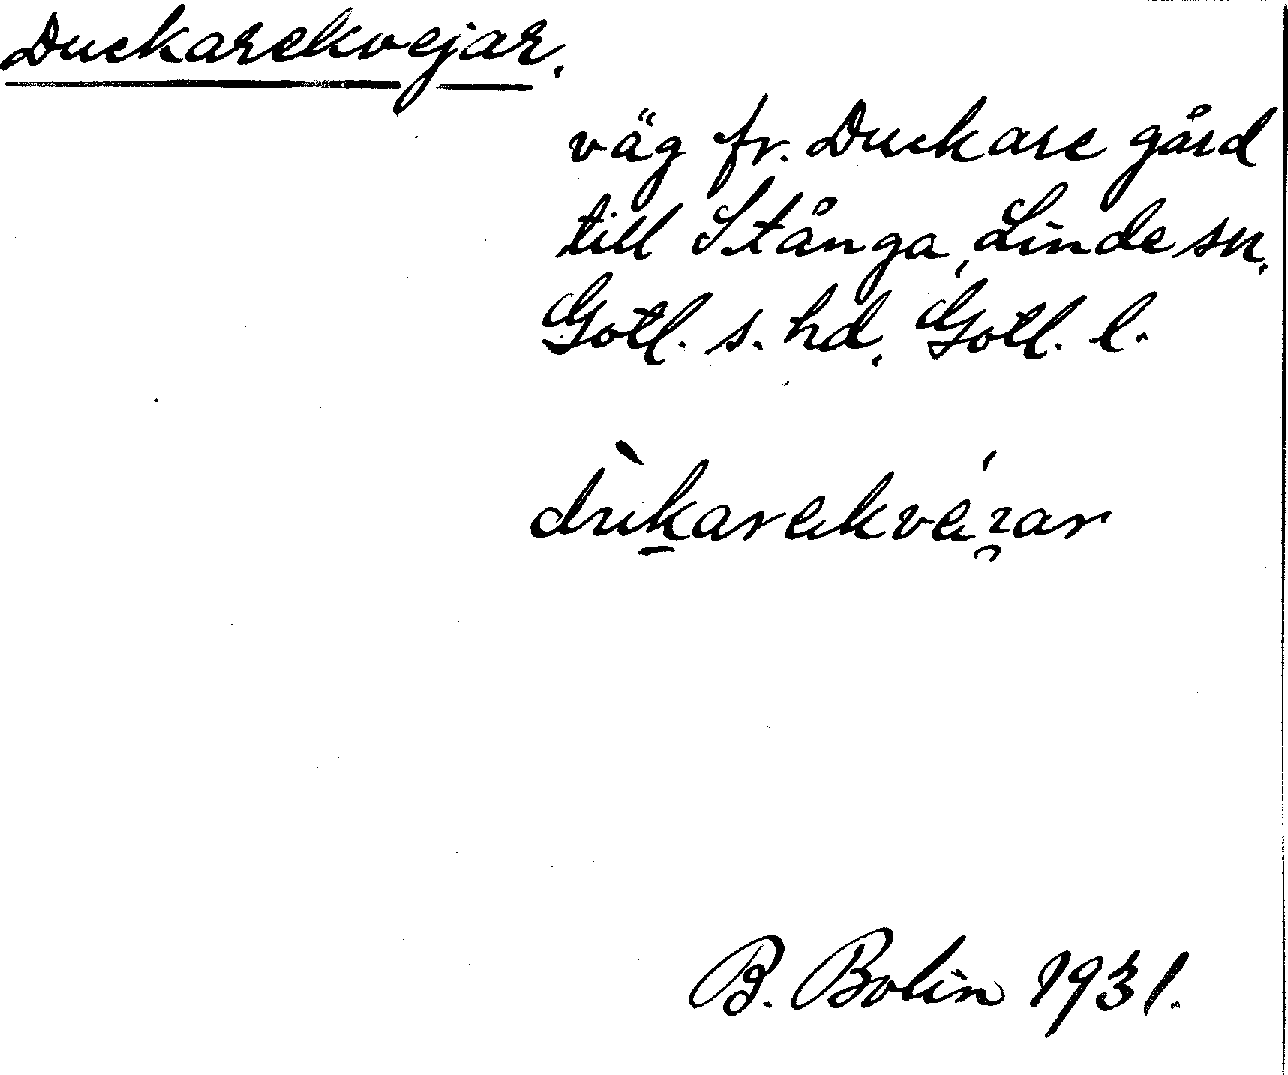 Duckarekvejar.
väg fr. Duckare gård
till Stånga, Linde sn.
Gotl. s. hd. Gotl. l.
B. Bolin 1931.